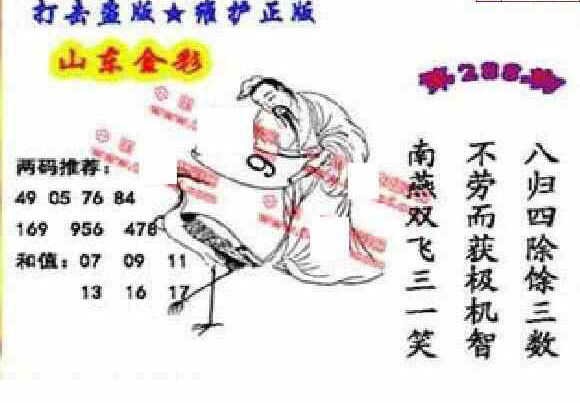 打击盗版★维护正版
山东金彩
288
两码推荐：
49 05 76 84
169 956 478
和值：07 09 11
13 16 17
9
八归四除馀三数
不劳而获极机智
南燕双飞三一笑